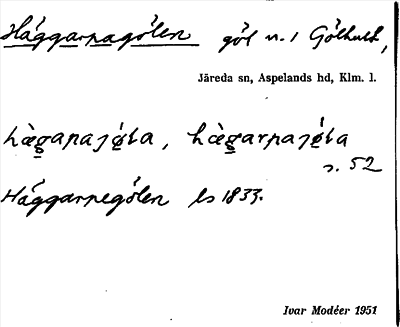 Häggarnagölen göl n. i Gölhult,
Järeda sn, Aspelands hd, Klm. l.
hæ̀ganaȷǿla, hæ̀garnaȷǿla
s. 52
Häggarnegölen ls 1833.
Ivar Modéer 1951